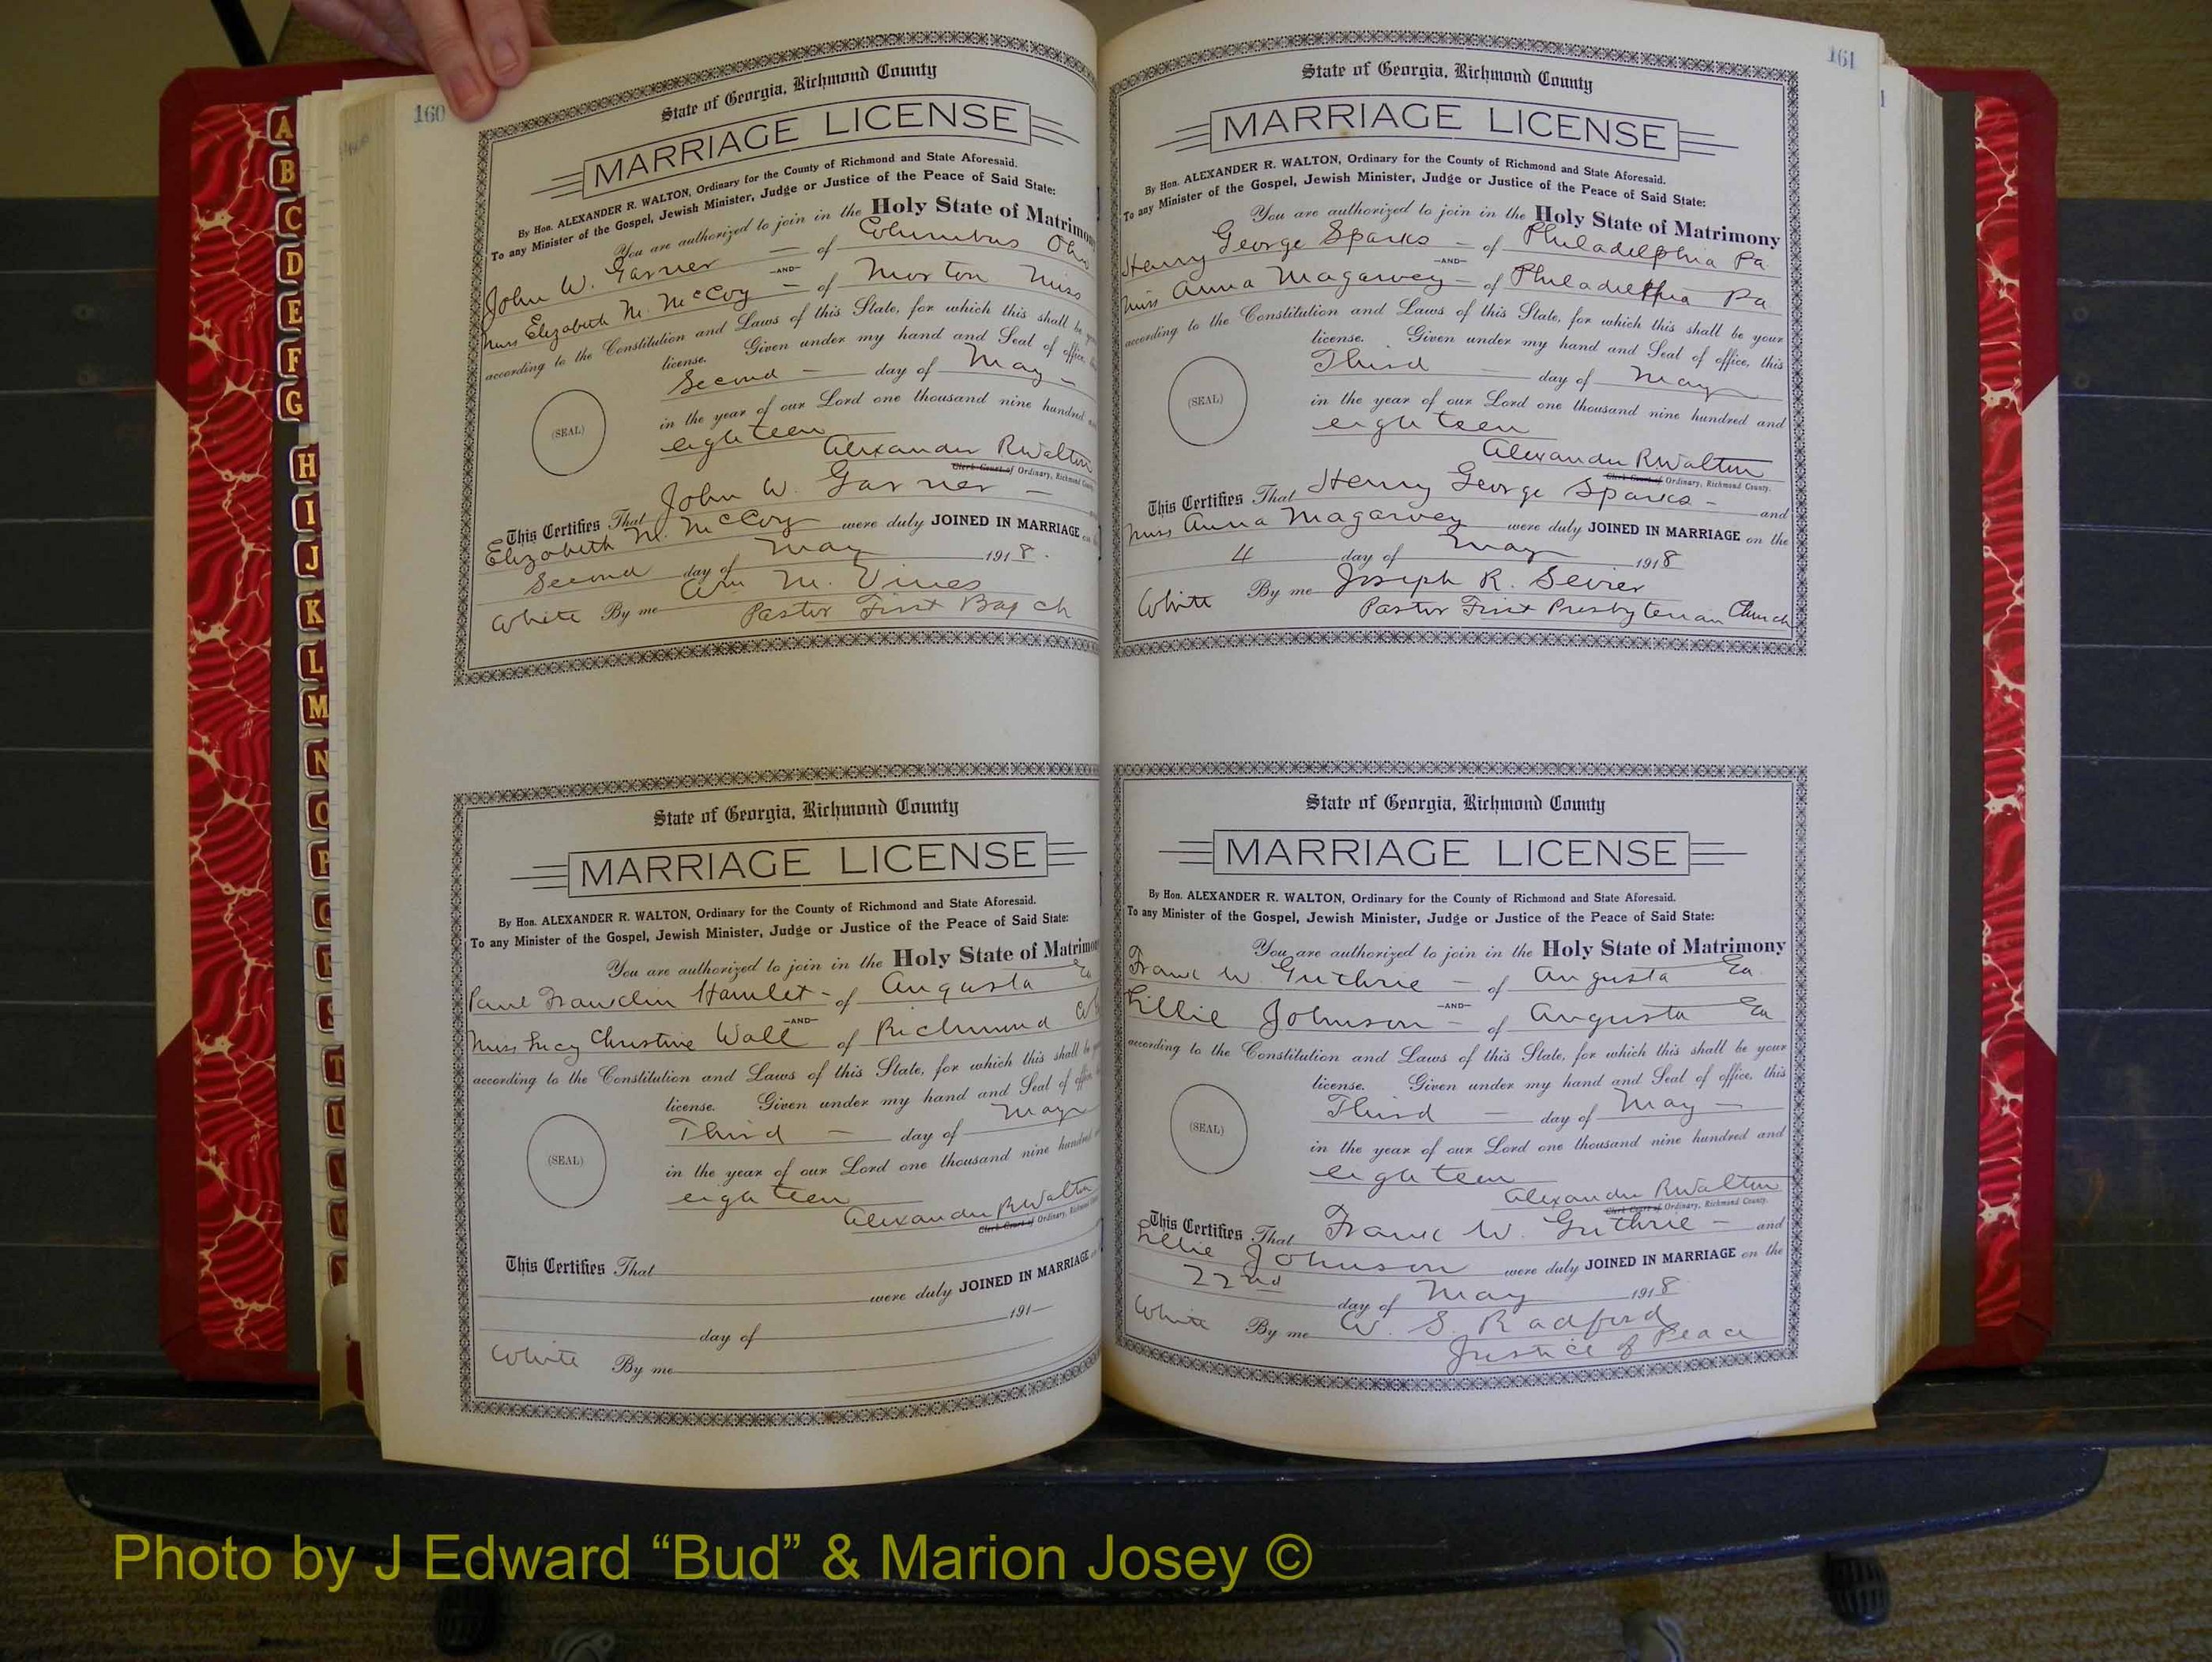 160
State of Georgia, Richmond County
MARRIAGE LICENSE
By Hon. ALEXANDER R. WALTON, Ordinary for the County of Richmond and State Aforesaid.
To any Minister of the Gospel, Jewish Minister, Judge or Justice of the Peace of Said State:
You are authorized to join in the Holy State of Matrimony
John W. Garner — of Columbus Ohio
—AND—
Miss Elizabeth M. McCoy — of Morton Miss
according to the Constitution and Laws of this State, for which this shall be
license. Given under my hand and Seal of office,
Second — day of May —
(SEAL)
in the year of our Lord one thousand nine hundred
eighteen
Alexander R Walton
Clerk Court of Ordinary, Richmond County.
This Certifies That John W. Garner —
Elizabeth M. McCoy were duly JOINED IN MARRIAGE on
Second day of May 1918.
White By me Wm M. Vines
Pastor First Bap ch
State of Georgia, Richmond County
MARRIAGE LICENSE
By Hon. ALEXANDER R. WALTON, Ordinary for the County of Richmond and State Aforesaid.
To any Minister of the Gospel, Jewish Minister, Judge or Justice of the Peace of Said State:
You are authorized to join in the Holy State of Matrimony
Paul Franklin Hamlet — of Augusta Ga
—AND—
Miss Lucy Christine Wall of Richmond
according to the Constitution and Laws of this State, for which this shall be
license. Given under my hand and Seal of office,
Third — day of May
(SEAL)
in the year of our Lord one thousand nine hundred
eighteen
Alexander R Walton
Clerk Court of Ordinary, Richmond
This Certifies That
were duly JOINED IN MARRIAGE
day of 191—
White By me
161
State of Georgia, Richmond County
MARRIAGE LICENSE
By Hon. ALEXANDER R. WALTON, Ordinary for the County of Richmond and State Aforesaid.
To any Minister of the Gospel, Jewish Minister, Judge or Justice of the Peace of Said State:
You are authorized to join in the Holy State of Matrimony
Henry George Sparks — of Philadelphia Pa
—AND—
Miss Anna Magarvey — of Philadelphia Pa
according to the Constitution and Laws of this State, for which this shall be your
license. Given under my hand and Seal of office, this
Third — day of May
(SEAL)
in the year of our Lord one thousand nine hundred and
eighteen
Alexander R Walton
Clerk Court of Ordinary, Richmond County.
This Certifies That Henry George Sparks — and
Miss Anna Magarvey were duly JOINED IN MARRIAGE on the
4 day of May 1918
White By me Joseph R. Sevier
Pastor First Presbyterian Church
State of Georgia, Richmond County
MARRIAGE LICENSE
By Hon. ALEXANDER R. WALTON, Ordinary for the County of Richmond and State Aforesaid.
To any Minister of the Gospel, Jewish Minister, Judge or Justice of the Peace of Said State:
You are authorized to join in the Holy State of Matrimony
Frank W. Guthrie — of Augusta Ga
—AND—
Lillie Johnson — of Augusta Ga
according to the Constitution and Laws of this State, for which this shall be your
license. Given under my hand and Seal of office, this
Third — day of May —
(SEAL)
in the year of our Lord one thousand nine hundred and
eighteen
Alexander R Walton
Clerk Court of Ordinary, Richmond County.
This Certifies That Frank W. Guthrie — and
Lillie Johnson were duly JOINED IN MARRIAGE on the
22nd day of May 1918
White By me W. S. Radford
Justice of Peace
A
B
C
D
E
F
G
H
I
J
K
L
M
N
O
P
Q
R
S
T
U
V
W
Photo by J Edward “Bud” & Marion Josey ©